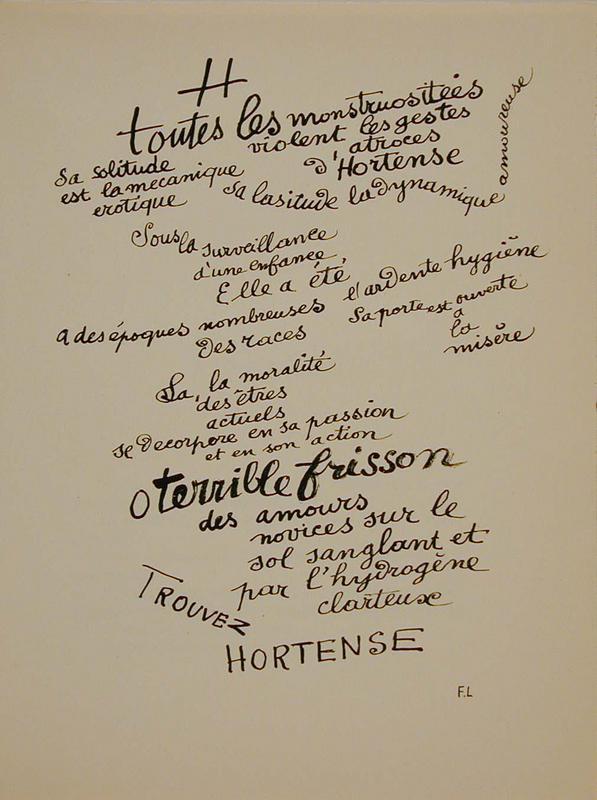 H
toutes les monstruositées
violent les gestes
atroces
d'Hortense
Sa solitude
est la mecanique
erotique
Sa lasitude la dynamique
amoureuse
Sous la surveillance
d'une enfance
Elle a été,
a des époques nombreuses
l'ardente hygiène
Des races
Sa porte est ouverte
à
la
misère
La, la moralité
des êtres
actuels
se decorpore en sa passion
et en son action
O terrible frisson
des amours
novices sur le
sol sanglant et
par l'hydrogène
clarteuse
TROUVEZ
HORTENSE
F.L